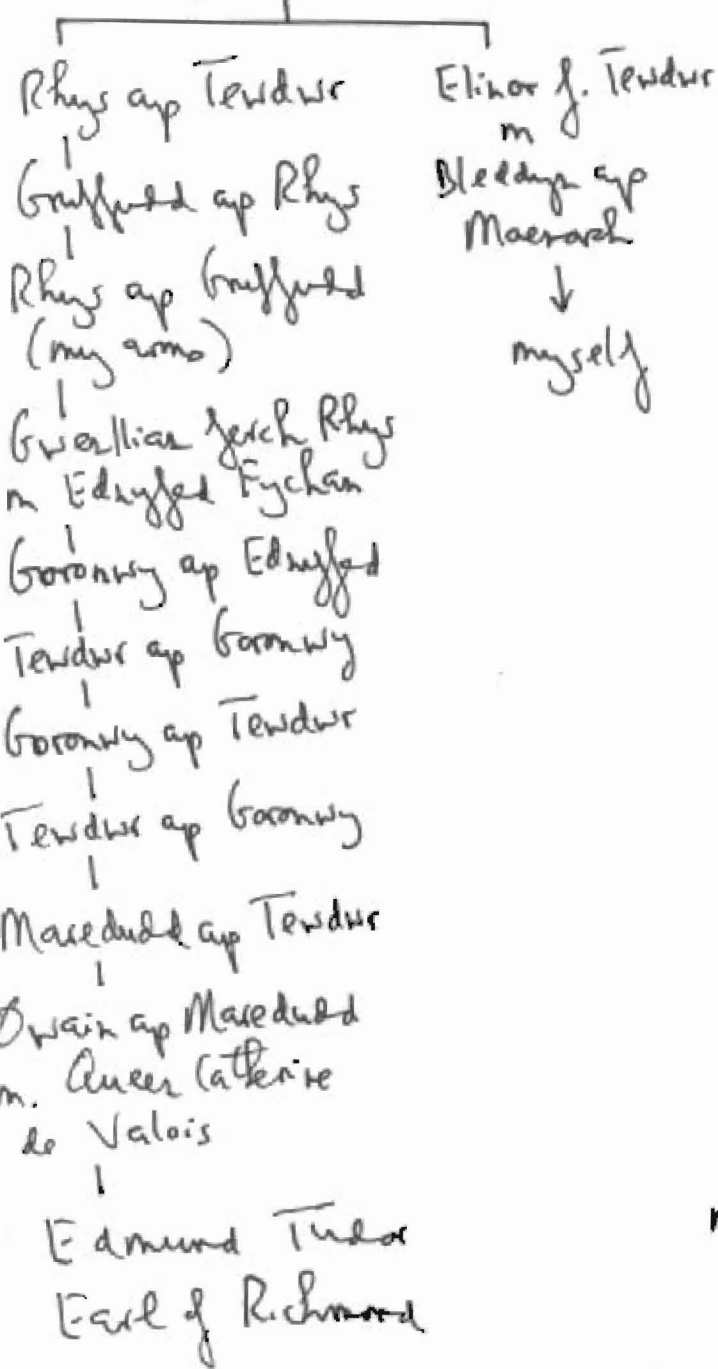 Rhys ap Tewdwr
Gruffudd ap Rhys
Rhys ap Gruffudd
(my arms)
Gwenllian ferch Rhys
m Ednyfed Fychan
Goronwy ap Ednyfed
Tewdwr ap Goronwy
Goronwy ap Tewdwr
Tewdwr ap Goronwy
Maredudd ap Tewdwr
Owain ap Maredudd
m. Queen Catherine
de Valois
Edmund Tudor
Earl of Richmond
Elinor f. Tewdwr
m
Bleddyn ap
Maenarch
myself